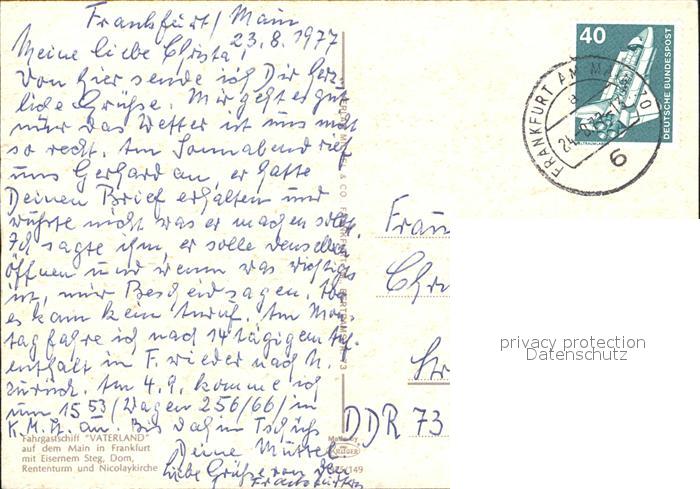 Frankfurt/Main
23.8.1977
Meine liebe Christa!
Von hier sende ich Dir herz-
liche Grüße. Mir geht es gut
nur das Wetter ist uns nicht
so recht. Am Sonnabend rief
uns Gerhard an, er hatte
Deinen Brief erhalten und
wußte nicht was er machen sollte.
Ich sagte ihm, er solle denselben
öffnen und wenn was wichtiges
ist, mir Bescheid sagen.
es kam kein Anruf. Am Mon-
tag fahre ich nach 14 tägigem Auf-
enthalt in F. wieder nach N.
zurück. Am 4.9. komme ich
um 15 53/Wagen 256/66/in
K.M.St. an. Bis dahin Tschüß
Deine Mutter.
Liebe Grüße von den
Frankfurtern
Fahrgastschiff "VATERLAND"
auf dem Main in Frankfurt
mit Eisernem Steg, Dom,
Rententurm und Nicolaykirche
Made by
KRÜGER
/149
& CO. FRANKFURT
40
DEUTSCHE BUNDESPOST
FRANKFURT AM MAIN 1
6
Frau
Chr
Str
DDR 73
privacy protection
Datenschutz